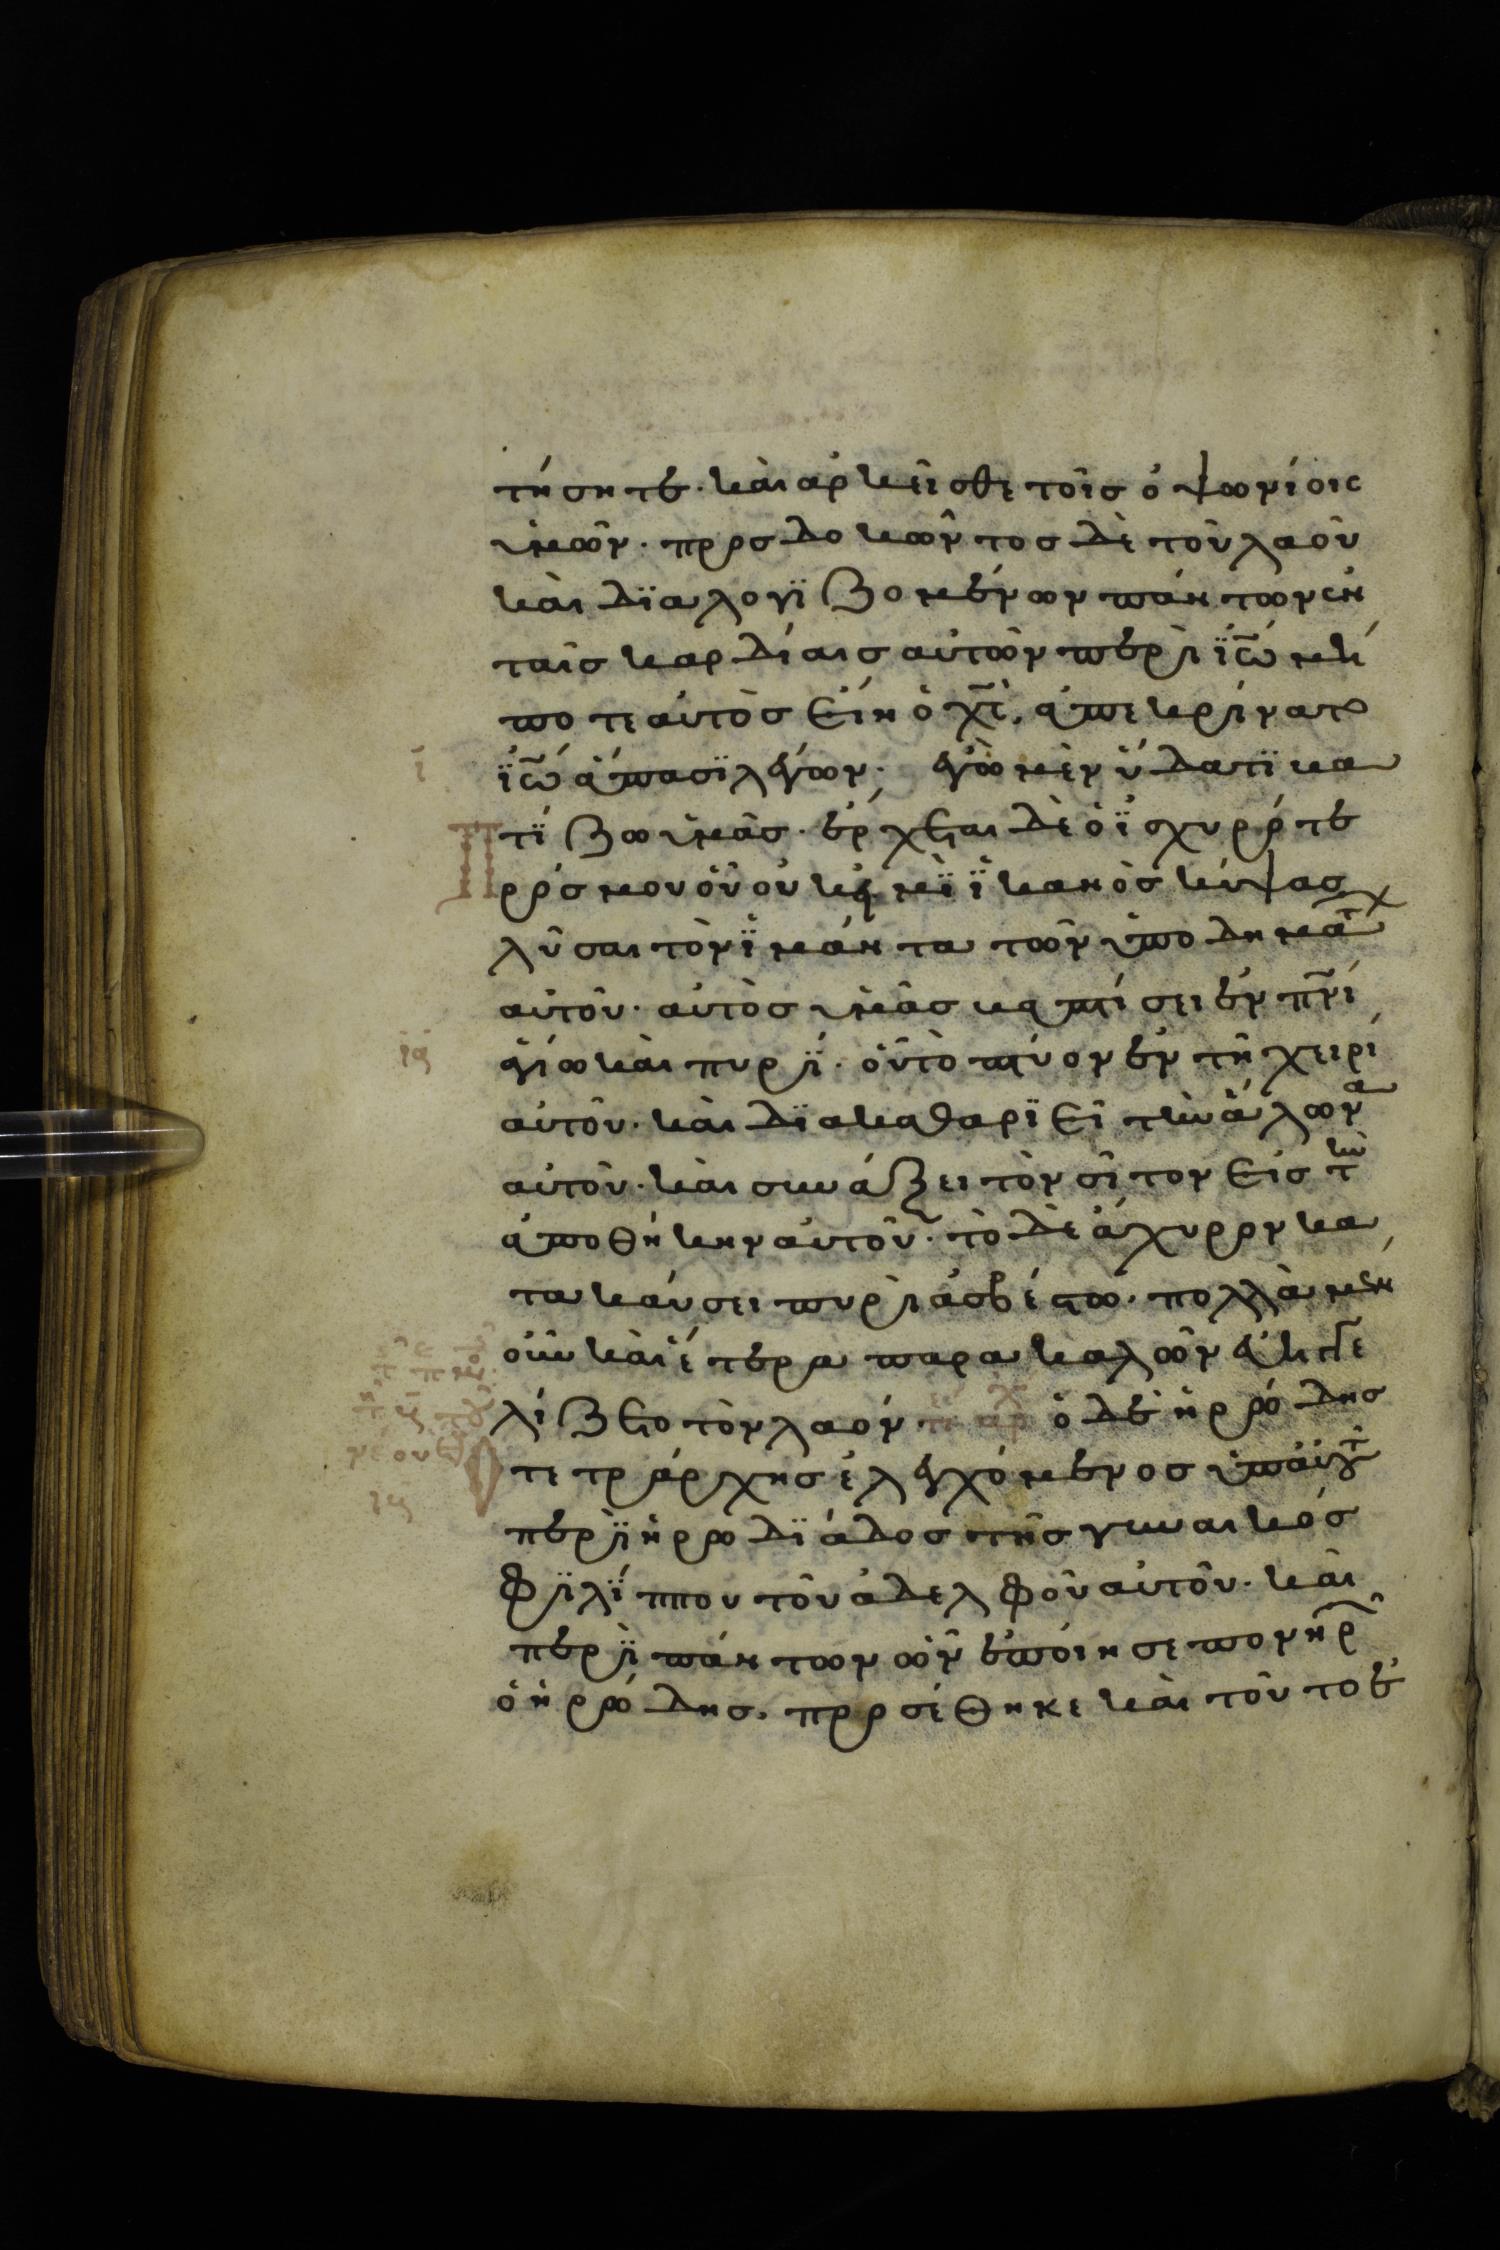 τήσητε· καὶ ἀρκεῖσθε τοῖς ὀψωνίοις
ὑμῶν· προσδοκῶντος δὲ τοῦ λαοῦ
καὶ διαλογϊζομένων πάντων ἐν
ταῖς καρδίαις αὐτῶν περὶ ϊω̅ μή
ποτε αὐτὸς εἴη ὁ χ̅ς̅, ἀπεκρίνατο
ϊω̅ ἅπασϊ λέγων· ἐγὼ μὲν ὕδατϊ βα
τϊζω ὑμᾶς· ἔρχεται δὲ ὁ ϊσχυρότε
ρός μου οὗ οὐκ εἰμϊ ϊκανὸς κύψας
λῦσαι τὸν ϊμάντα τῶν ὑποδημάτ
αὐτοῦ· αὐτὸς ὑμᾶς βαπτίσει ἐν π̅ν̅ι̅
ἁγίω καὶ πυρϊ· οὗ τὸ πτύον ἐν τῆ χειρὶ
αὐτοῦ· καὶ δϊακαθαρϊεῖ τὴν ἅλωνα
αὐτοῦ· καὶ συνάξει τὸν σῖτον εἰς τὴν
ἀποθήκην αὐτοῦ· τὸ δὲ ἄχυρον κα
τακαύσει πυρὶ ἀσβέστω· πολλὰ μὲν
οὖν καὶ ἕτερα παρακαλῶν εὐηγγε
λίζετο τὸν λαόν ὁ δὲ ἡρώδης
τετράρχης ἐλεγχόμενος ὑπ' αὐτ
περϊ ἡρωδϊάδος τῆς γυναικός
φϊλϊππου τοῦ ἀδελφοῦ αὐτοῦ· καὶ
περϊ πάντων ὧν ἐποίησε πονηρ
ὁ ἡρώδης. προσέθηκε καὶ τοῦτο ἐ